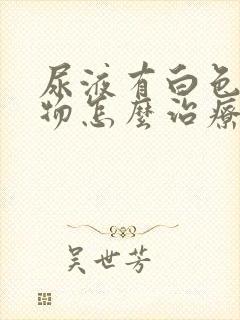 尿液有白色
物怎麼治療
吴世芳